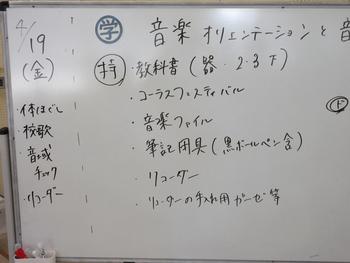 4/19
(金)
・体ほぐし
・校歌
・音域
チェック
・リコーダー
学 音楽 オリエンテーションと音
持 ・教科書(器・2・3下)
・コーラスフェスティバル
・音楽ファイル
・筆記用具(黒ボールペン含)
・リコーダー
・リコーダーの手入れ用ガーゼ等
ド